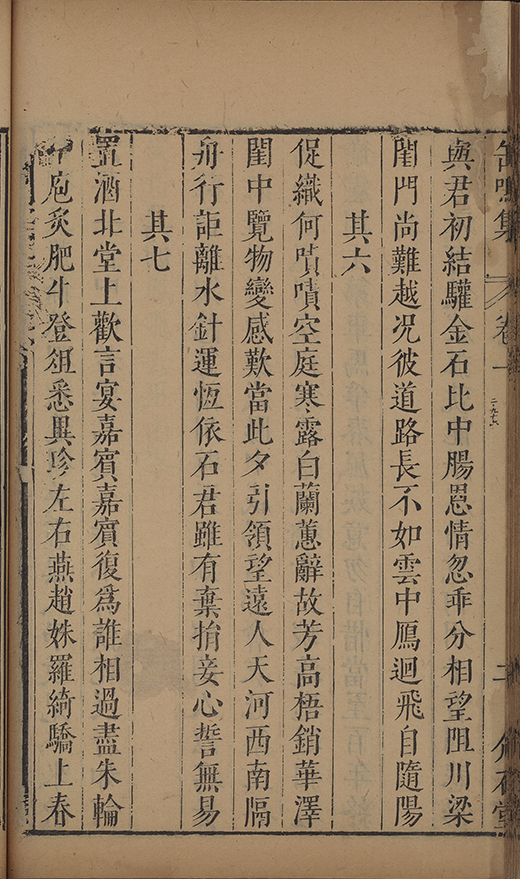 缶鳴集 卷一 二 石堂
與君初結驩金石比中腸恩情忽乖分相望阻川梁
閨門尚難越况彼道路長不如雲中鴈迴飛自隨陽
其六
促織何嘖嘖空庭寒露白蘭蕙辭故芳高梧銷華澤
閨中覽物變感歎當此夕引領望遠人天河西南隔
舟行詎離水針運恆依石君雖有棄捐妾心誓無易
其七
置酒北堂上歡言宴嘉賓嘉賓復爲誰相過盡朱輪
庖炙肥牛登俎悉異珍左右燕趙姝羅綺驕上春